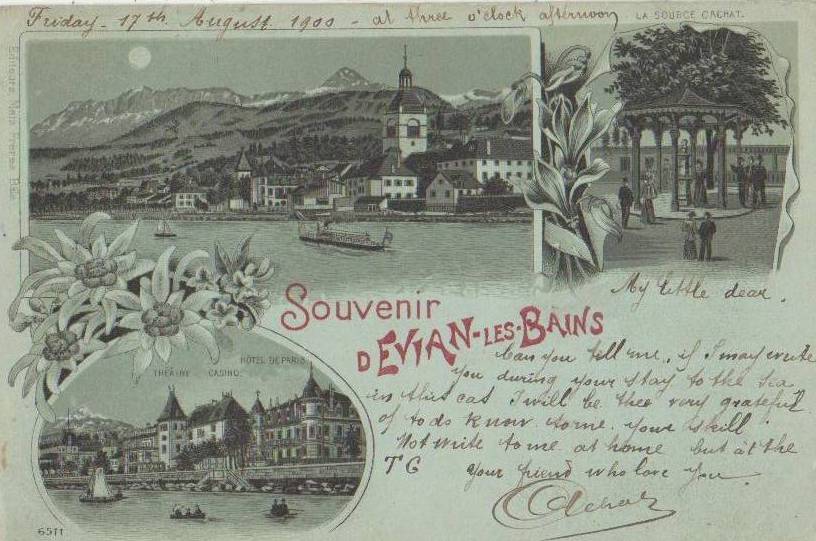 Friday - 17th August 1900 - at three o'clock afternoon
LA SOURCE CACHAT.
My little dear.
Souvenir
D'EVIAN-LES-BAINS
Can you tell me, if I may write
you during your stay to the sea
in this cas I will be thee very grateful
of to do know to me your
Not write to me at home but at the
TC your friend who love you.
THÉATRE CASINO.
HÔTEL DE PARIS
6511